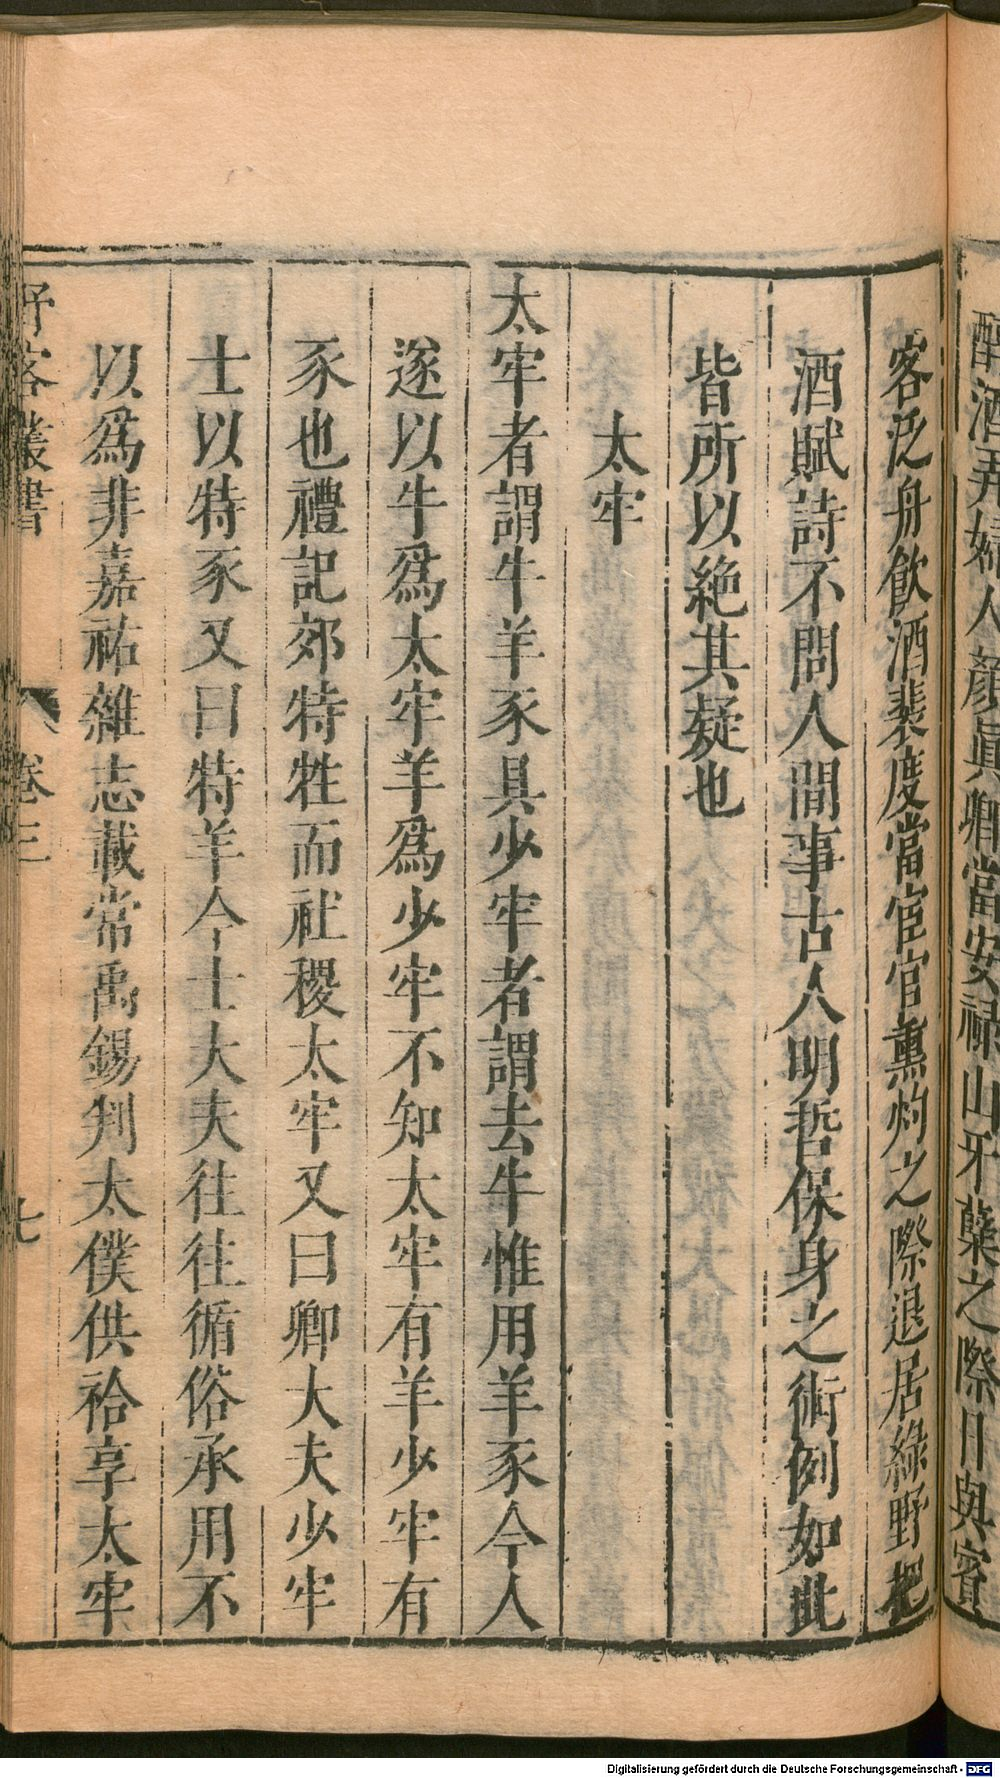 醉酒弄婦人顔眞卿當安祿山牙蘖之際日與賓
客泛舟飲酒裴度當宦官薰灼之際退居綠野把
酒賦詩不問人間事古人明哲保身之術例如此
皆所以絶其疑也
太牢
太牢者謂牛羊豕具少牢者謂去牛惟用羊豕今人
遂以牛爲太牢羊爲少牢不知太牢有羊少牢有
豕也禮記郊特牲而社稷太牢又曰卿大夫少牢
士以特豕又曰特羊今士大夫往往循俗承用不
以爲非嘉祐雜志載常禹錫判太僕供祫享太牢
野客叢書
卷三
七
Digitalisierung gefördert durch die Deutsche Forschungsgemeinschaft - DFG